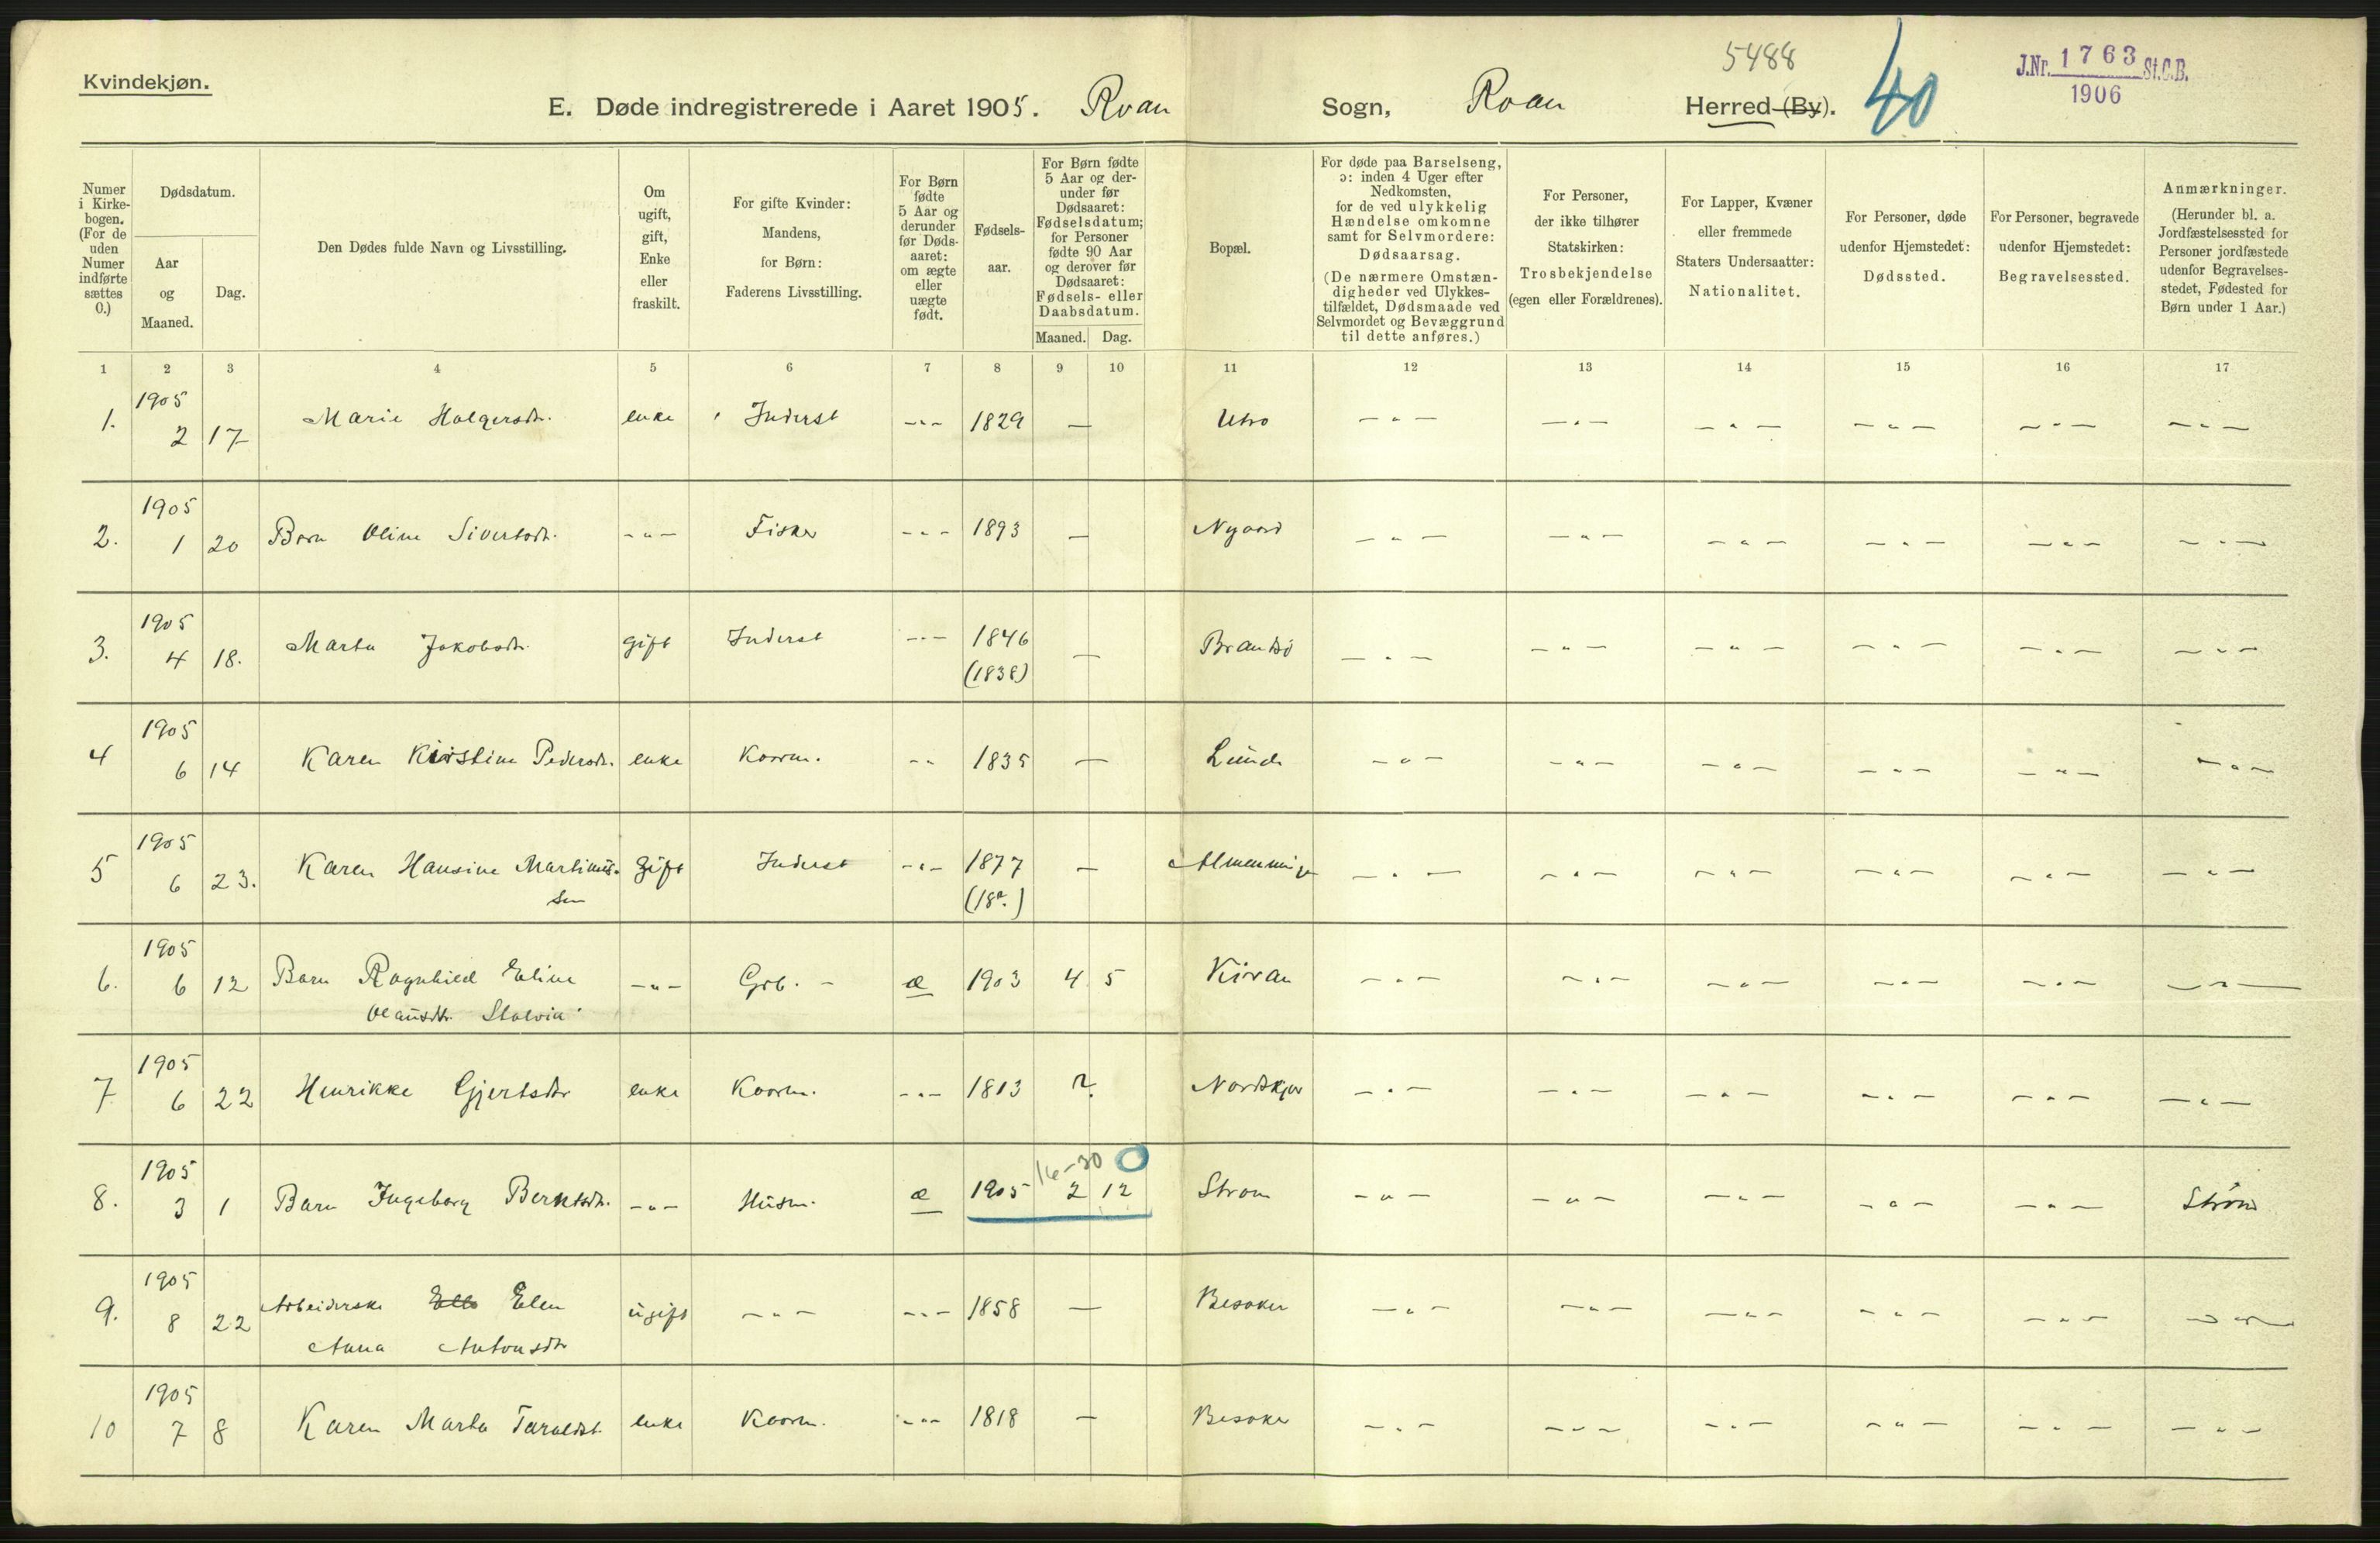 Kvindekjøn.
5488
40
J.Nr. 1763 St.C.B.
1906
E. Døde indregistrerede i Aaret 1905. Roan Sogn, Roan Herred (By).
Numer i Kirkebogen. (For de uden Numer indførte sættes 0.)
Dødsdatum.
Aar og Maaned.
Dag.
Den Dødes fulde Navn og Livsstilling.
Om ugift, gift, Enke eller fraskilt.
For gifte Kvinder: Mandens, for Børn: Faderens Livsstilling.
For Børn fødte 5 Aar og derunder før Dødsaaret: om ægte eller uægte født.
Fødselsaar.
For Børn fødte 5 Aar og derunder før Dødsaaret: Fødselsdatum; for Personer fødte 90 Aar og derover før Dødsaaret: Fødsels- eller Daabsdatum.
Maaned. Dag.
Bopæl.
For døde paa Barselseng, ɔ: inden 4 Uger efter Nedkomsten, for de ved ulykkelig Hændelse omkomne samt for Selvmordere: Dødsaarsag. (De nærmere Omstændigheder ved Ulykkestilfældet, Dødsmaade ved Selvmordet og Bevæggrund til dette anføres.)
For Personer, der ikke tilhører Statskirken: Trosbekjendelse (egen eller Forældrenes).
For Lapper, Kvæner eller fremmede Staters Undersaatter: Nationalitet.
For Personer, døde udenfor Hjemstedet: Dødssted.
For Personer, begravede udenfor Hjemstedet: Begravelsessted.
Anmærkninger. (Herunder bl. a. Jordfæstelsessted for Personer jordfæstede udenfor Begravelsesstedet, Fødested for Børn under 1 Aar.)
1 2 3 4 5 6 7 8 9 10 11 12 13 14 15 16 17
1. 1905 2 17 Marie Holgersdtr. enke Inderst -"- 1829 — Utro -"- -"- -"- -"- -"- -"-
2. 1905 1 20 Barn Oline Sivertsdtr. -"- Fisker -"- 1893 — Nygaard -"- -"- -"- -"- -"- -"-
3. 1905 4 18. Marta Jakobsdtr. gift Inderst -"- 1846 (1838) — Brandsø -"- -"- -"- -"- -"- -"-
4 1905 6 14 Karen Kirstine Pedersdtr. enke Kaarm. -"- 1835 — Lunde -"- -"- -"- -"- -"- -"-
5 1905 6 23. Karen Hansine Martinus- gift Inderst -"- 1877 — Almenninge -"- -"- -"- -"- -"- -"-
sen
6. 1905 6 12 Barn Ragnhild Eline -"- Grb. - æ 1903 4 5 Kiran -"- -"- -"- -"- -"- -"-
Olausdtr. Stalvia
7 1905 6 22 Henrikke Gjertsdtr enke Kaarm. -"- 1813 ? Nordskjør -"- -"- -"- -"- -"- -"-
8. 1905 3 1 Barn Ingeborg Berntsdtr. -"- Husm. æ 1905 16-30 2 12 0 Strøm -"- -"- -"- -"- -"- Strøm
9. 1905 8 22 Arbeiderske Elen ugift -"- -"- 1858 — Besaker -"- -"- -"- -"- -"- -"-
Anna Antonsdtr
10 1905 7 8 Karen Marta Taraldst. enke Kaarm. -"- 1818 — Besaker -"- -"- -"- -"- -"- -"-